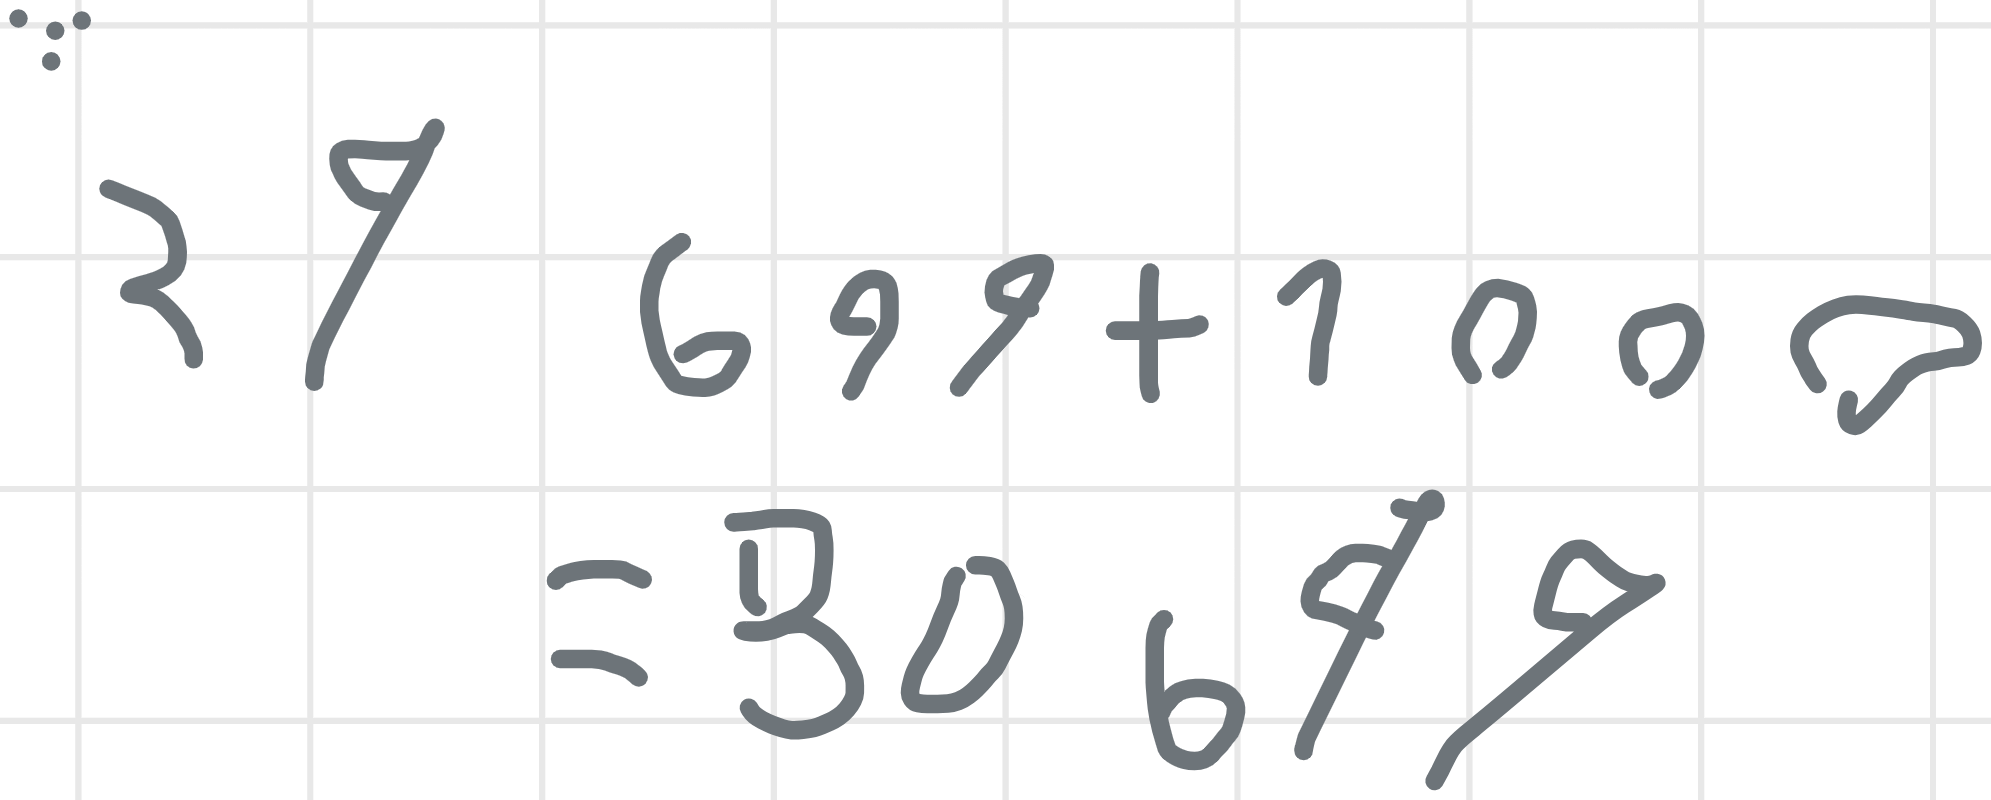 29 699+1000
=30 699